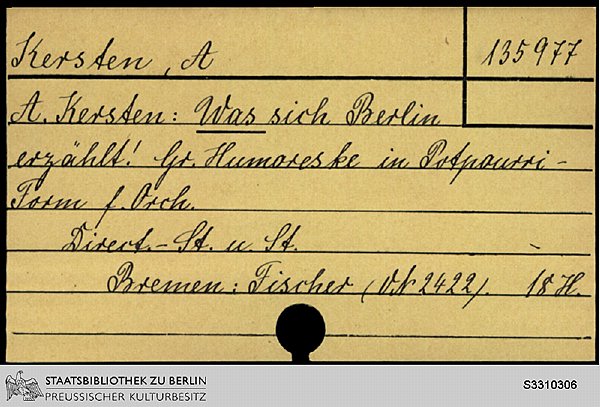 Kersten, A
135977
A. Kersten: Was sich Berlin
erzählt! Gr. Humoreske in Potpourri-
Form f. Orch.
Direct.-St. u. St.
Bremen: Fischer (V.N 2422). 18 H.
STAATSBIBLIOTHEK ZU BERLIN
PREUSSISCHER KULTURBESITZ
S3310306